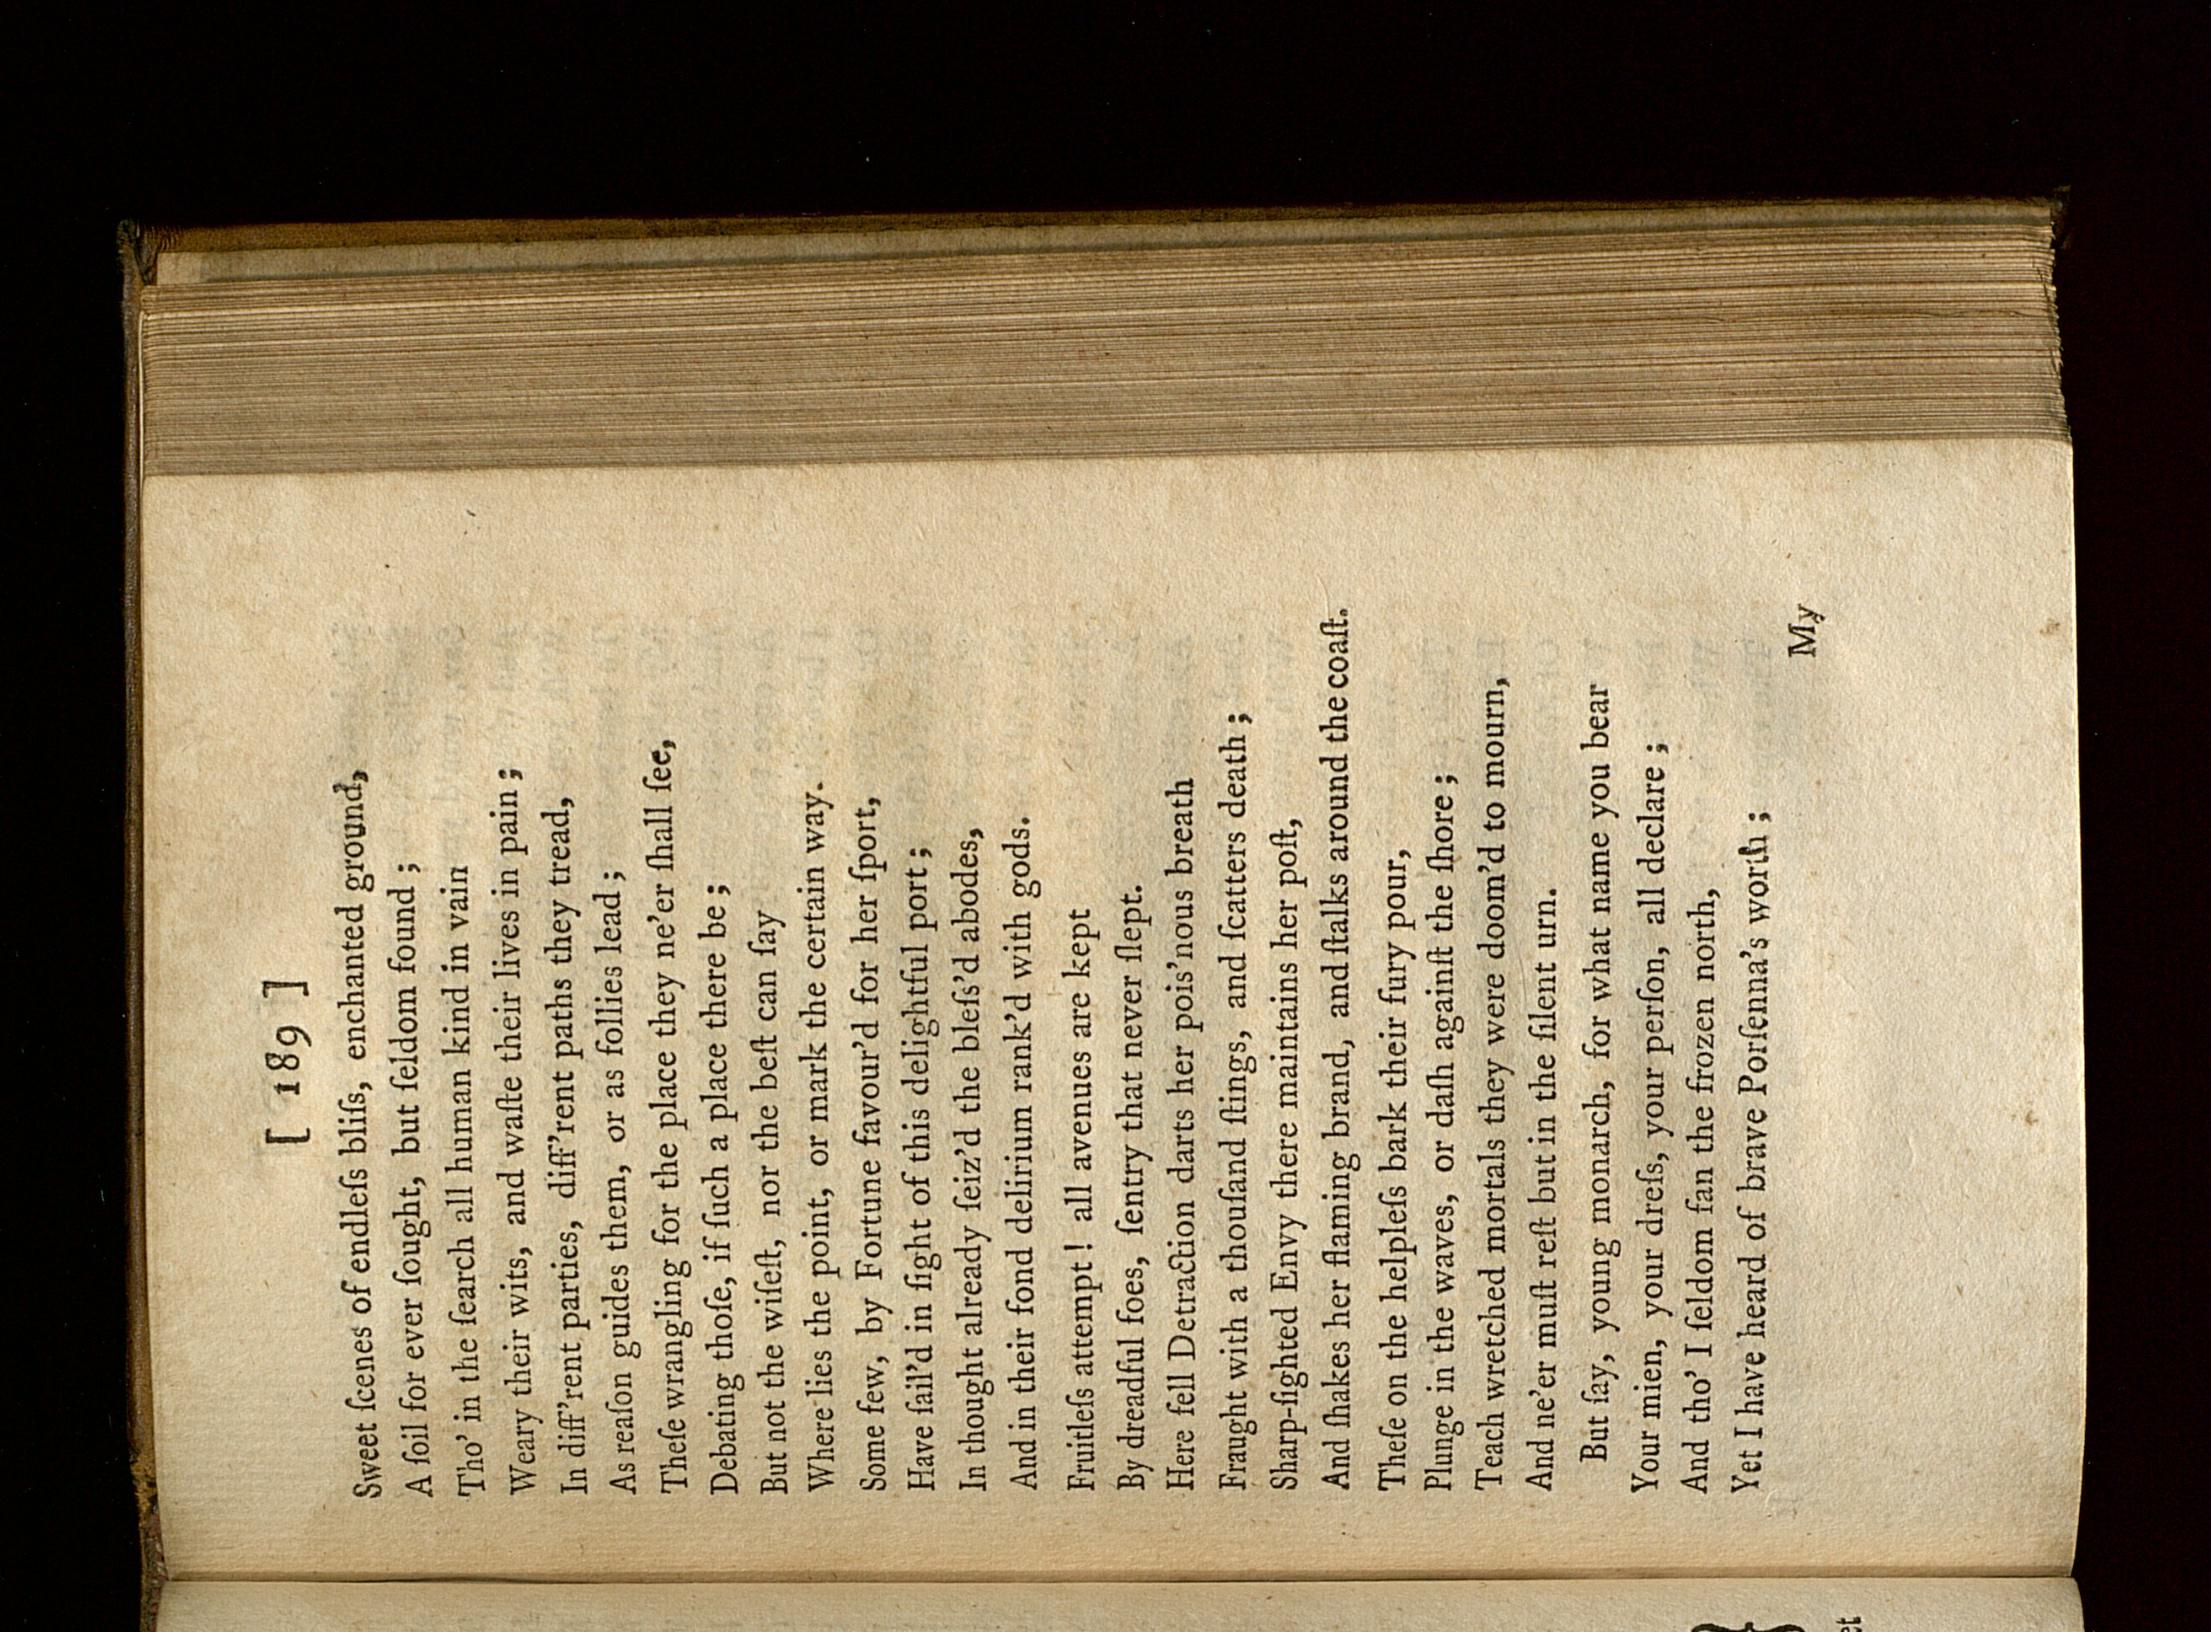 [ 189 ]
Sweet ſcenes of endleſs bliſs, enchanted ground,
A ſoil for ever ſought, but ſeldom found ;
Tho' in the ſearch all human kind in vain
Weary their wits, and waſte their lives in pain ;
In diff'rent parties, diff'rent paths they tread,
As reaſon guides them, or as follies lead ;
Theſe wrangling for the place they ne'er ſhall ſee,
Debating thoſe, if ſuch a place there be ;
But not the wiſeſt, nor the beſt can ſay
Where lies the point, or mark the certain way.
Some few, by Fortune favour'd for her ſport,
Have ſail'd in ſight of this delightful port ;
In thought already ſeiz'd the bleſs'd abodes,
And in their fond delirium rank'd with gods.
Fruitleſs attempt ! all avenues are kept
By dreadful foes, ſentry that never ſlept.
Here fell Detraction darts her pois'nous breath
Fraught with a thouſand ſtings, and ſcatters death ;
Sharp-ſighted Envy there maintains her poſt,
And ſhakes her flaming brand, and ſtalks around the coaſt.
Theſe on the helpleſs bark their fury pour,
Plunge in the waves, or daſh againſt the ſhore ;
Teach wretched mortals they were doom'd to mourn,
And ne'er muſt reſt but in the ſilent urn.
But ſay, young monarch, for what name you bear
Your mien, your dreſs, your perſon, all declare ;
And tho' I ſeldom fan the frozen north,
Yet I have heard of brave Porſenna's worth ;
My
et